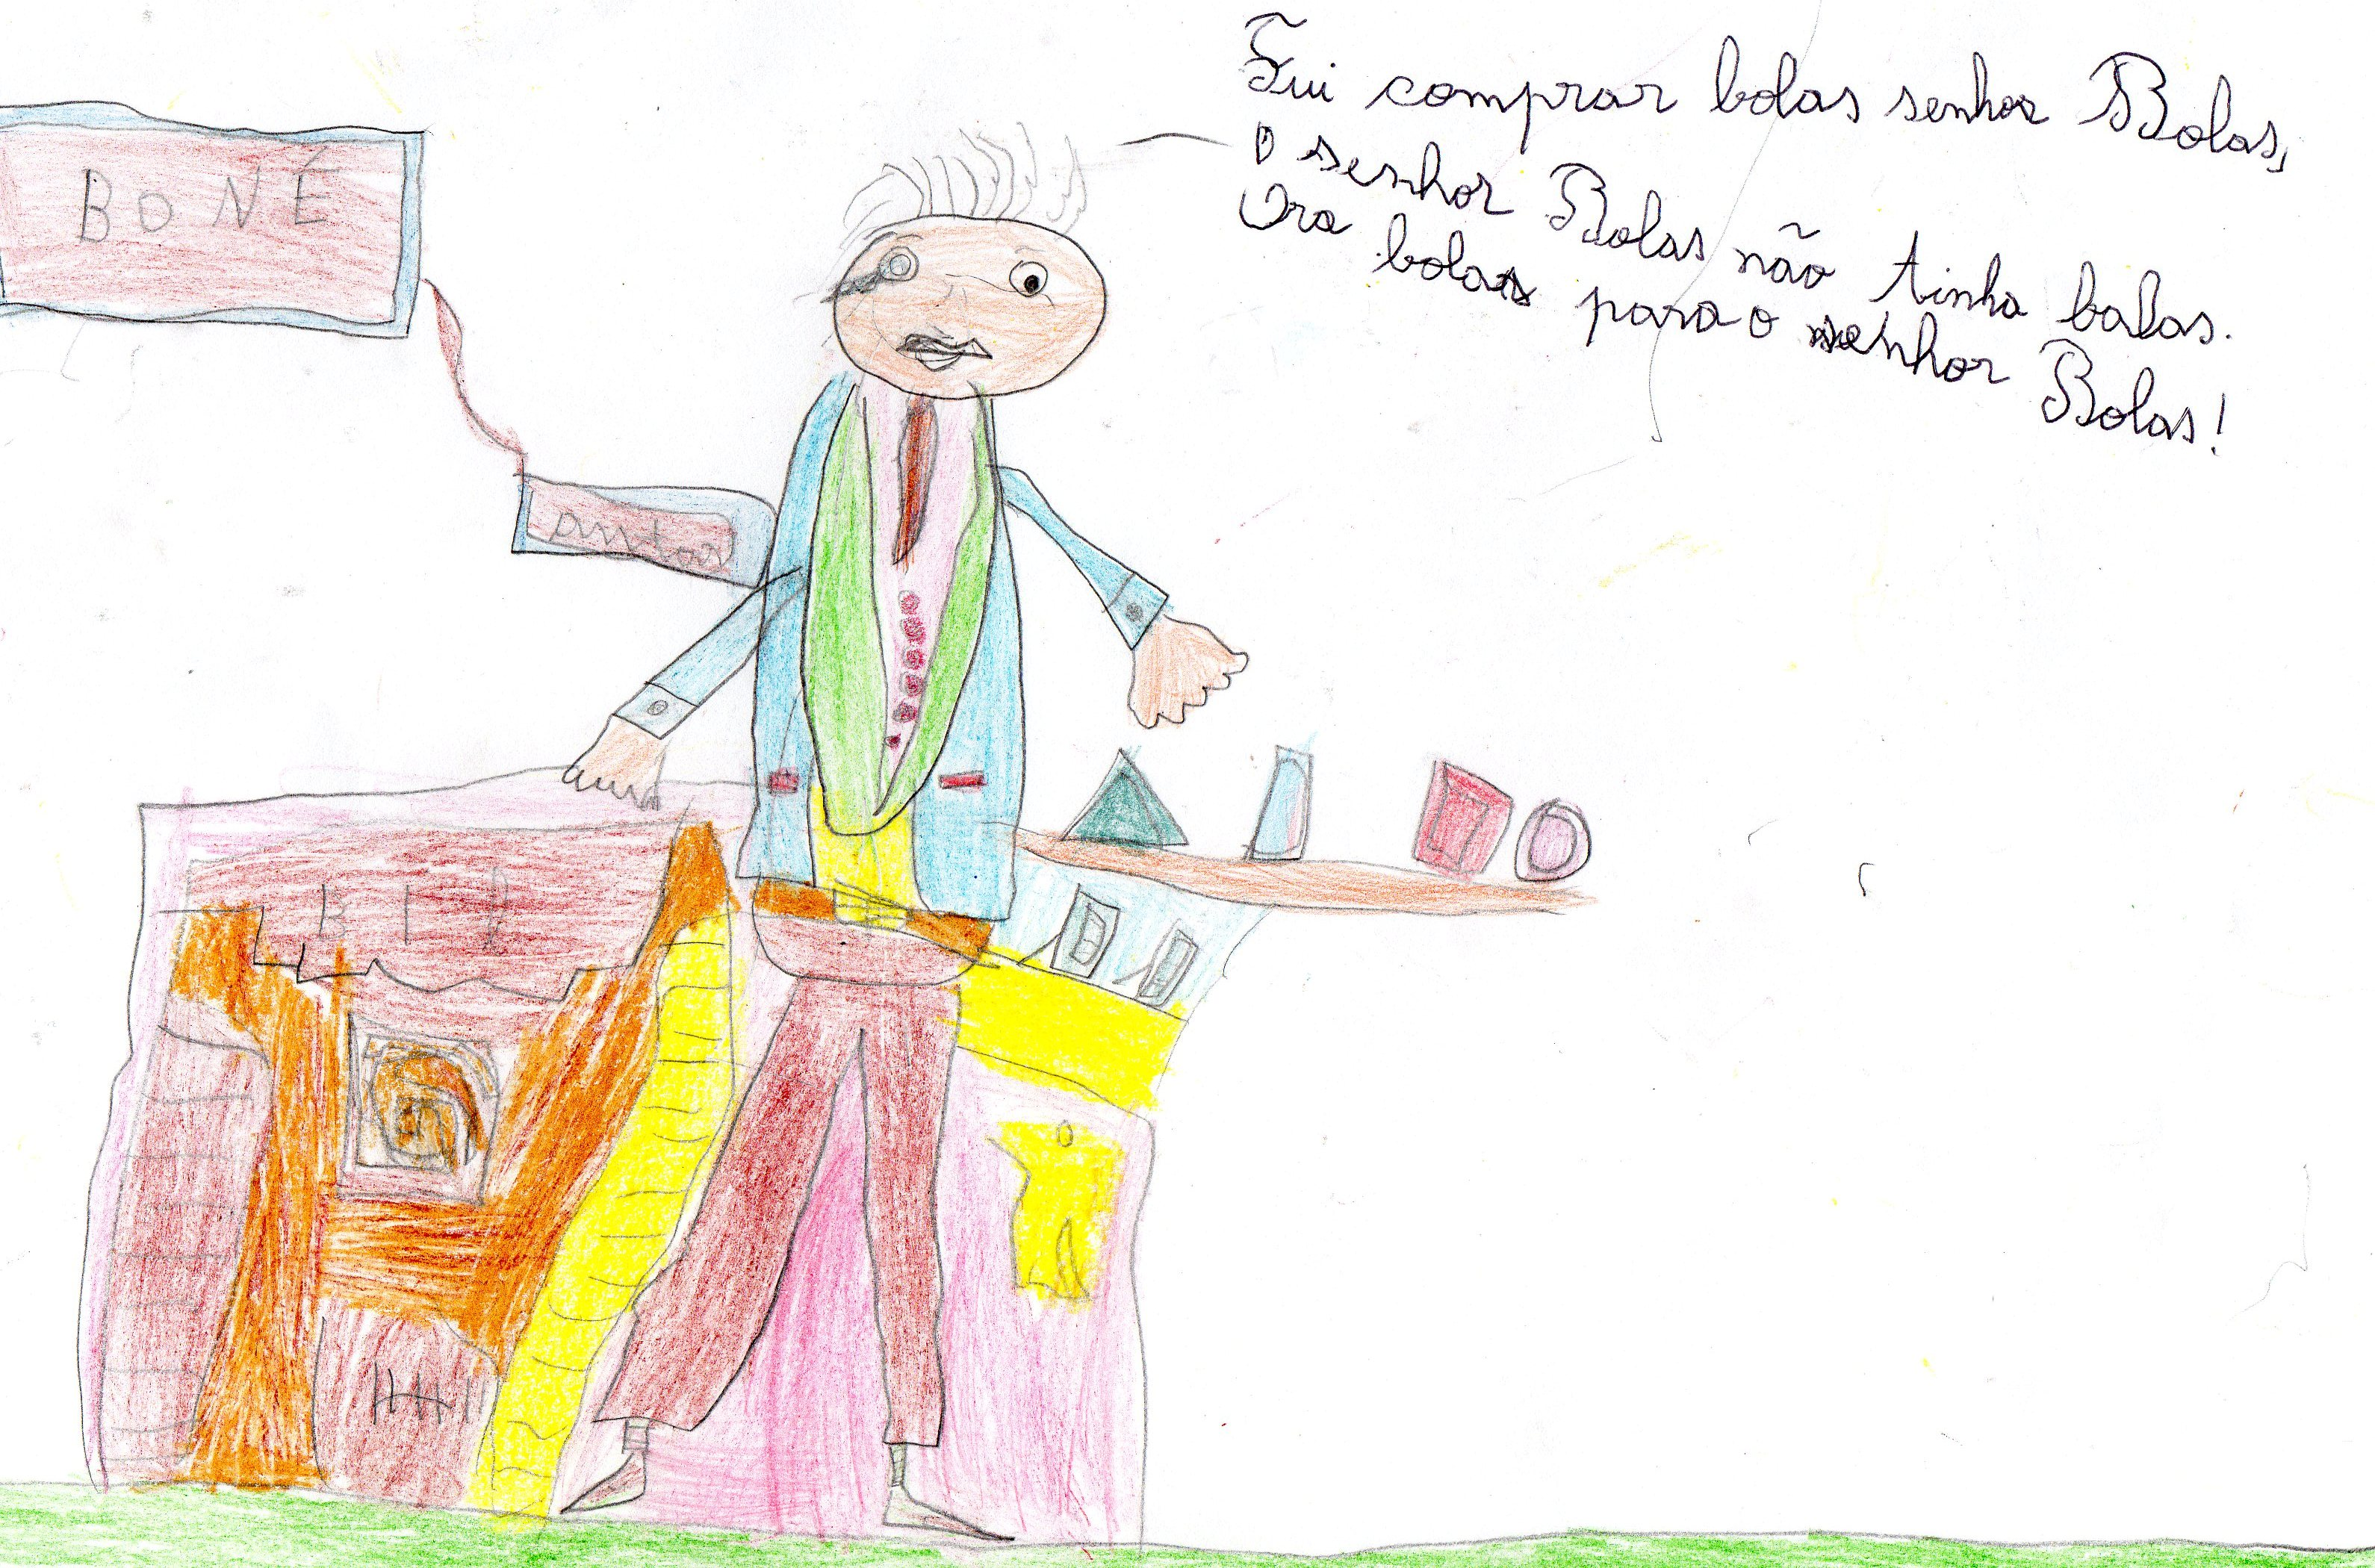 Fui comprar bolas senhor Bolas,
O senhor Bolas não tinha bolas.
Ora bolas para o senhor Bolas!
BONÉ